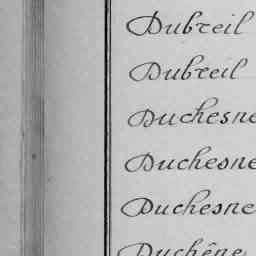 Dubreil
Dubreil
Duchesne
Duchesne
Duchesne
Duchêne